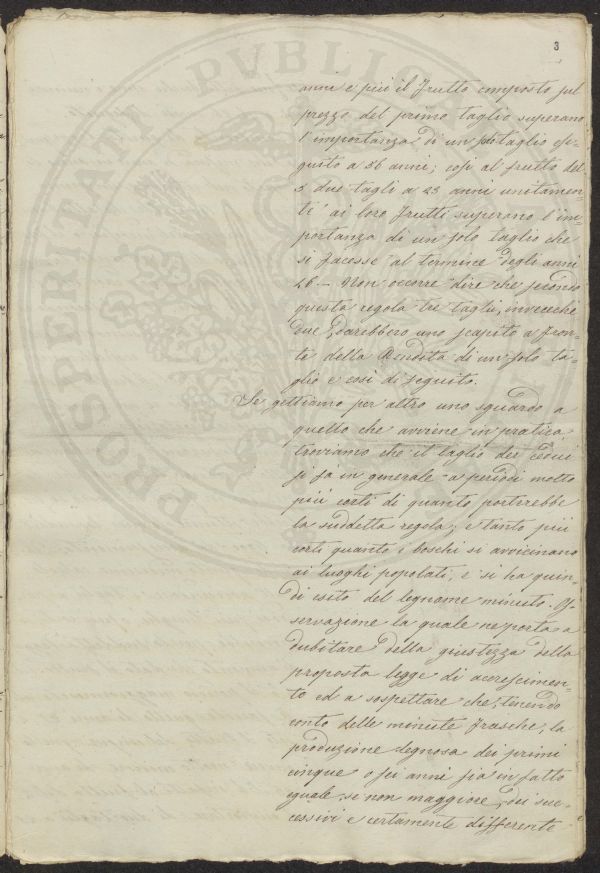 3
anni e più il frutto composto sul
prezzo del primo taglio superano
l'importanza di un sol taglio ese-
guito a 56 anni; così al frutto dei
due tagli a 23 anni unitamen-
ti ai loro frutti superano l'im-
portanza di un solo taglio che
si facesse al termine degli anni
46 – Non occorre dire che secondo
questa regola tre tagli, invecechè
due, darebbero uno scapito a fron-
te della Rendita di un solo ta-
glio e così di seguito.
Se gettiamo per altro uno sguardo a
quello che avviene in pratica,
troviamo che il taglio dei cedui
si fa in generale a periodi molto
più corti di quanto porterebbe
la suddetta regola; e tanto più
corti quanto i boschi si avvicinano
ai luoghi popolati, e si ha quin-
di esito del legname minuto. Os-
servazione la quale ne porta a
dubitare della giustezza della
proposta legge di accrescimen-
to ed a sospettare che, tenendo
conto delle minute frasche, la
produzione legnosa dei primi
cinque o sei anni sia in fatto
eguale, se non maggiore, dei suc-
cessivi e certamente differente
PROSPERITATI PVBLICAE